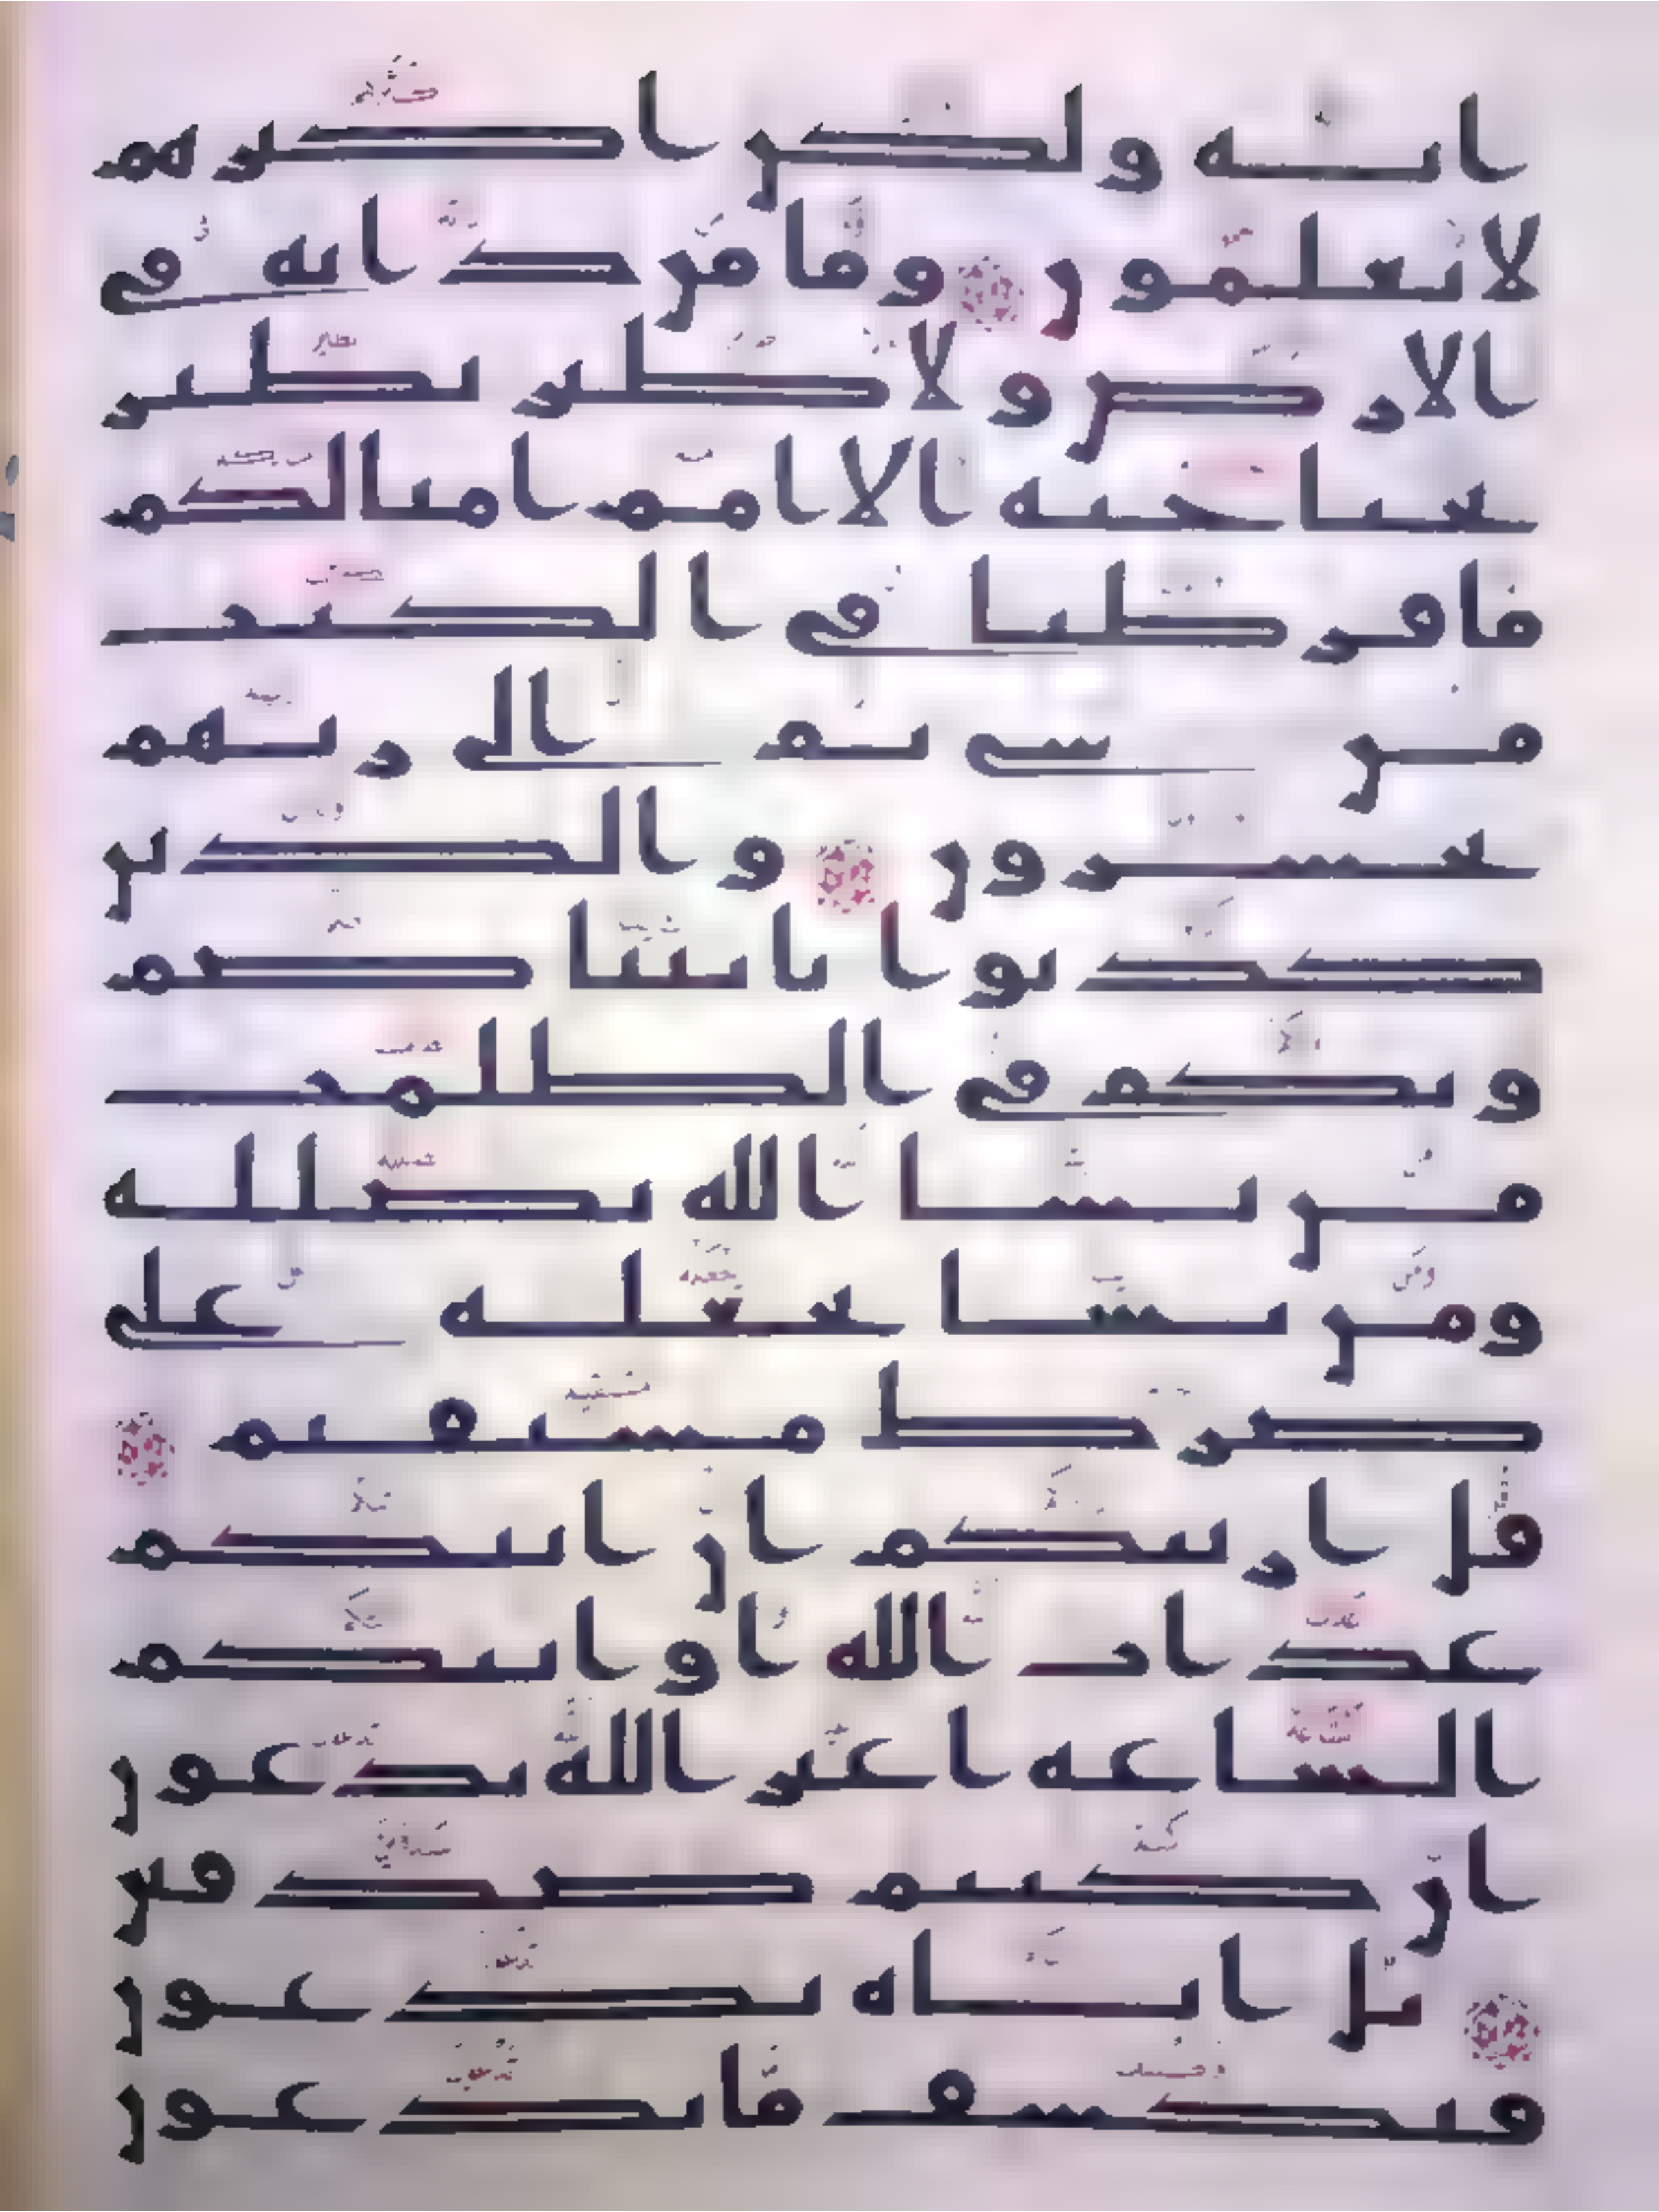 اية ولكن اكثرهم
لا يعلمون وما من دابة في
الارض ولا طير يطير
بجناحيه الا امم امثالكم
ما فرطنا في الكتب
من شي ثم الى ربهم
يحشرون والذين
كذبوا بايتنا صم
وبكم في الظلمت
من يشا الله يضلله
ومن يشا يجعله على
صرط مستقيم
قل اريتكم ان اتيكم
عذاب الله او اتتكم
الساعة اغير الله تدعون
ان كنتم صدقين
بل اياه تدعون
فيكشف ما تدعون